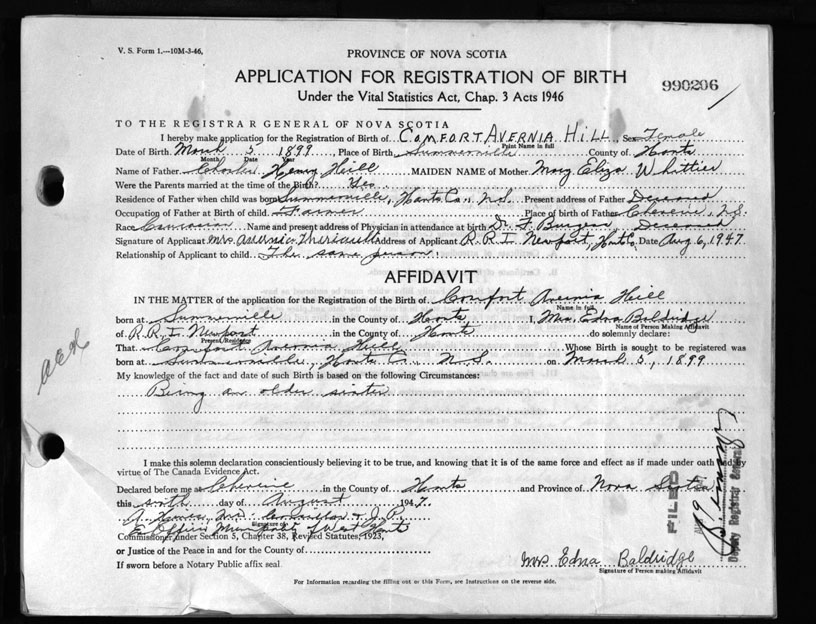 V. S. Form 1.—10M-3-46.
PROVINCE OF NOVA SCOTIA
APPLICATION FOR REGISTRATION OF BIRTH
990206
Under the Vital Statistics Act, Chap. 3 Acts 1946
TO THE REGISTRAR GENERAL OF NOVA SCOTIA
I hereby make application for the Registration of Birth of COMFORT AVERNIA HILL, Sex Female
Print Name in full
Date of Birth March 5 1899 Place of Birth Summerville County of Hants
Month Date Year
Name of Father Charles Henry Hill MAIDEN NAME of Mother Mary Eliza Whittier
Were the Parents married at the time of the Birth? Yes
Residence of Father when child was born Summerville, Hants Co., N.S. Present address of Father Deceased
Occupation of Father at Birth of child Farmer Place of birth of Father Cheverie, N.S.
Race Caucasian Name and present address of Physician in attendance at birth Dr. F. Burgess Deceased
Signature of Applicant Mrs. Address of Applicant R.R.1. Newport, Hants Co. Date Aug 6, 1947.
Relationship of Applicant to child The same person
AFFIDAVIT
IN THE MATTER of the application for the Registration of the Birth of Comfort Avernia Hill
Name in full
born at Summerville in the County of Hants I, Mrs. Edna Baldridge
Name of Person Making Affidavit
of R.R.1 Newport in the County of Hants do solemnly declare:
Present Residence
That Comfort Avernia Hill Whose Birth is sought to be registered was
born at Summerville, Hants Co., N.S. on March 5, 1899
My knowledge of the fact and date of such Birth is based on the following Circumstances:
Being an older sister
I make this solemn declaration conscientiously believing it to be true, and knowing that it is of the same force and effect as if made under oath and by
virtue of The Canada Evidence Act.
Declared before me at Cheverie in the County of Hants and Province of Nova Scotia
this sixth day of August 1947.
Signature of
Commissioner under Section 5, Chapter 38, Revised Statutes, 1923,
or Justice of the Peace in and for the County of
If sworn before a Notary Public affix seal
Mrs Edna Baldridge
Signature of Person making Affidavit
For Information regarding the filling out or this Form, see Instructions on the reverse side.
FILED
Deputy Registrar General